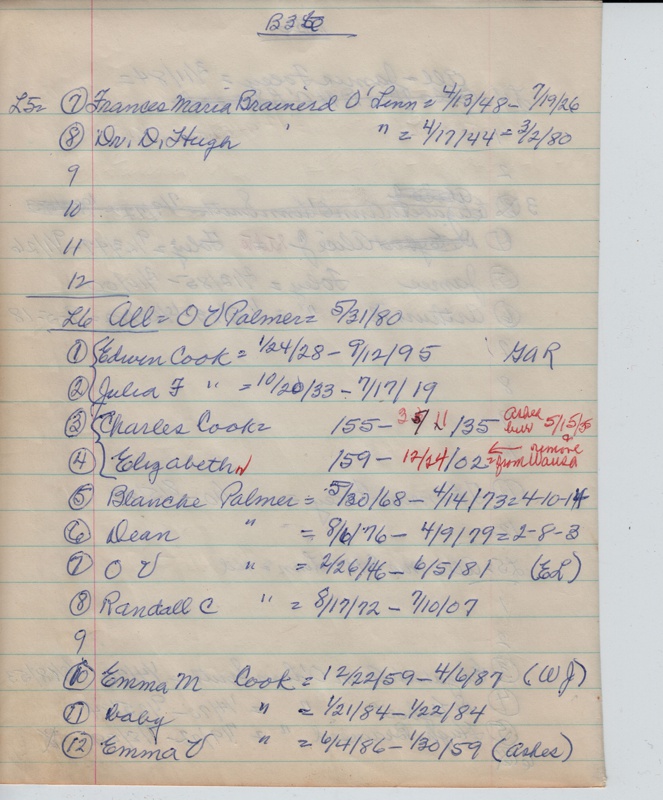 B36
L5= ⑦ Frances Maria Brainerd O'Linn = 4/13/48 - 7/19/26
⑧ Dr. D. Hugh " = 4/17/44 = 3/2/80
9
10
11
12
L6 All = O V Palmer = 5/31/80
① Edwin Cook = 1/24/28 - 9/12/95 GAR
② Julia F " = 10/20/33 - 7/17/19
③ Charles Cook = 155 - /35 ashes bur 5/15/35
④ Elizabeth 159 - 12/24/02 = ← & remove from Wausa
⑤ Blanche Palmer = 5/30/68 - 4/14/73 = 4-10-14
⑥ Dean " = 8/6/76 - 4/9/79 = 2-8-3
⑦ O V " = 2/26/46 - 6/5/81 (EL)
⑧ Randall C " = 8/17/72 - 7/10/07
9
⑩ Emma M Cook = 12/22/59 - 4/6/87 (WJ)
⑪ baby " = 1/21/84 - 1/22/84
⑫ Emma V " = 6/4/86 - 1/30/59 (ashes)